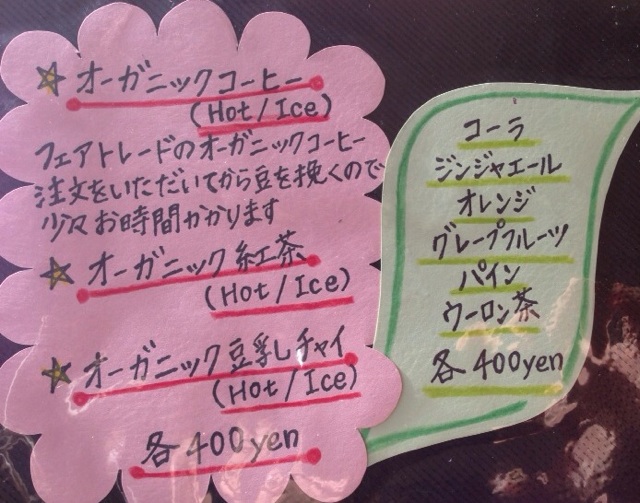 ☆ オーガニックコーヒー
(Hot/Ice)
フェアトレードのオーガニックコーヒー
注文をいただいてから豆を挽くので
少々お時間かかります
☆ オーガニック紅茶
(Hot/Ice)
☆ オーガニック豆乳チャイ
(Hot/Ice)
各400yen
コーラ
ジンジャエール
オレンジ
グレープフルーツ
パイン
ウーロン茶
各400yen